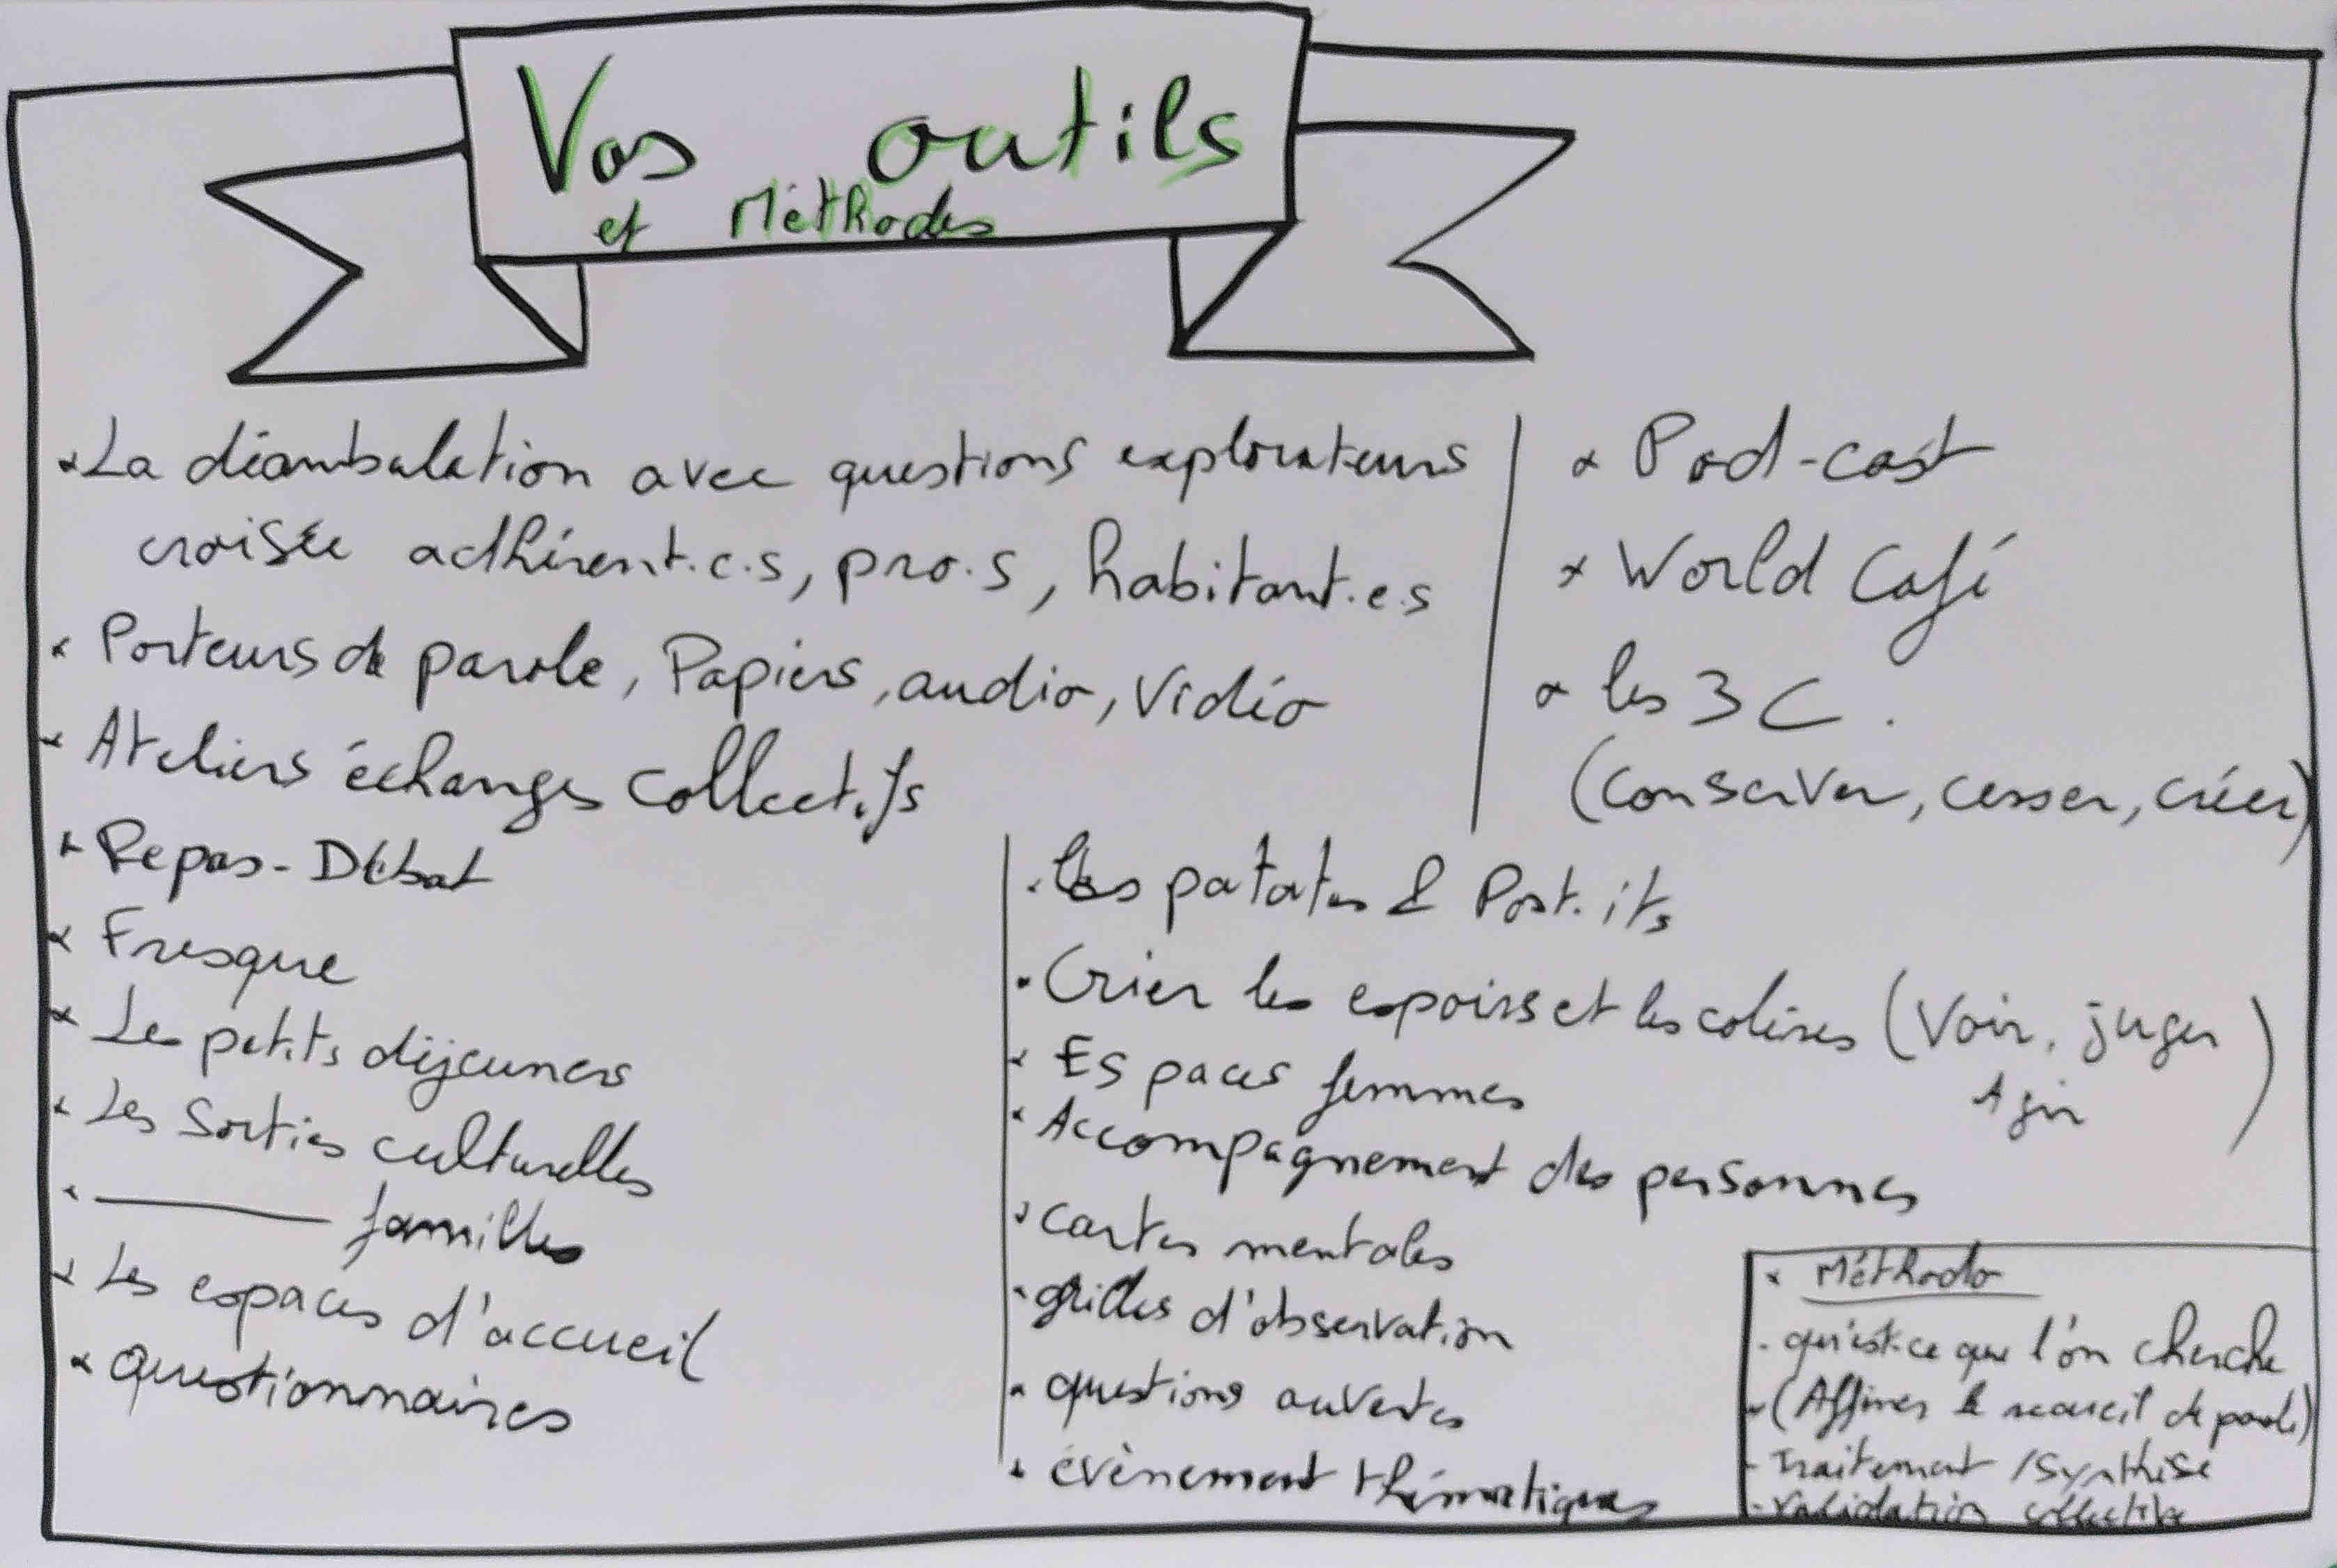 Vos outils
et Méthodes
La déambulation avec questions explorateurs
croisée adhérent.e.s, pro.s, habitant.e.s
Porteurs de parole, Papiers, audio, Vidéo
Ateliers échanges collectifs
Repas-Débat
Fresque
Les petits déjeuners
Les Sorties culturelles
——— familles
Les espaces d'accueil
questionnaires
Pod-cast
World Café
les 3C.
(Conserver, cesser, créer)
Les patates & Post-its
Crier les espoirs et les colères (Voir, juger
Agir)
Espaces femmes
Accompagnement des personnes
cartes mentales
grilles d'observation
questions ouvertes
évènement thématiques
Méthodo
- qu'est-ce que l'on cherche
- (Affiner le recueil de parole)
- Traitement /Synthèse
- Validation collective